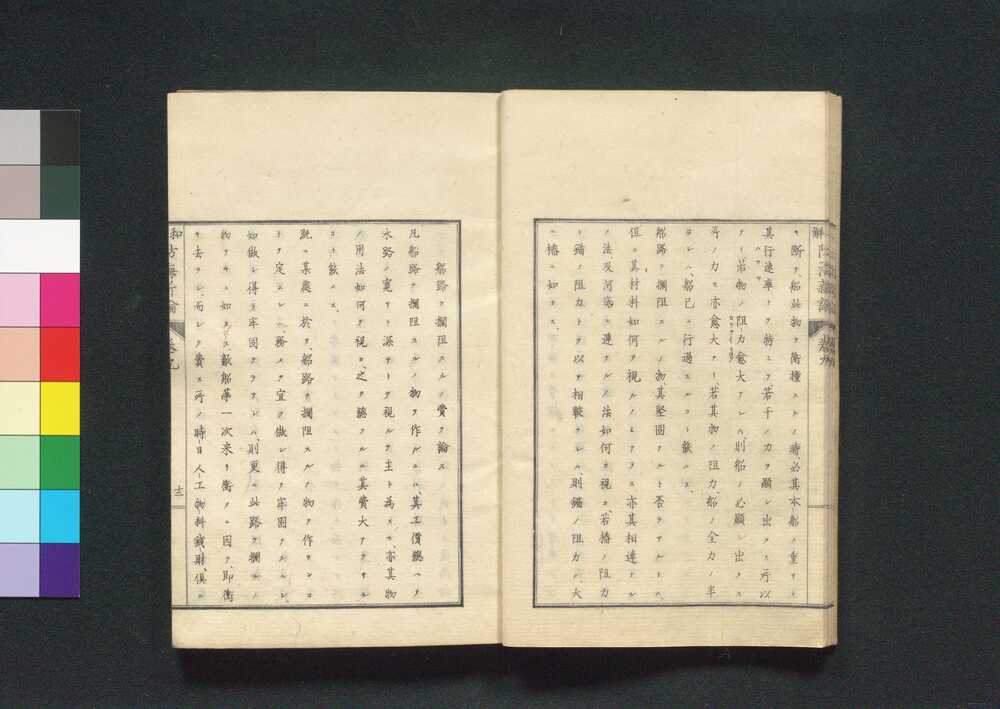 テ断ヲ、船此物ヲ衝撞スルノ時、必其本船ノ重サト
其行速率トヲ恃ミテ、若干ノ力ヲ顕シ出タス所以
ナリ、若物ノ阻力愈大ナレハ、則船ノ必顕シ出タス
所ノ力モ亦愈大ナリ、若其物ノ阻力、船ノ全力ノ半
ヨレハ、船已ニ行過スルコト歖ハス、
船路ヲ攔阻スルノ物、其堅固ナルト否ラサルトハ
但ニ其材料如何ヲ視ルノミナラス、亦其相連ナル
ノ法及河底ニ連ナルノ法如何ヲ視ル、若椿ノ阻力
ト錨ノ阻力トヲ以テ相較フレハ、則錨ノ阻力ハ、大
ニ椿ニ如カス、
船路ヲ攔阻スルノ費ヲ論ス
凡船路ヲ攔阻スルノ物ヲ作ルハ、其工價總ヘテ
水路ノ寛サト深サトヲ視ルヲ主ト為ス、亦其物
ノ用法如何ヲ視ル、之ヲ総フルニ其費大ナラサル
コト歖ハス、
既ニ某處ニ於テ、船路ヲ攔阻スルノ物ヲ作ランコ
トヲ定ムレハ、務メテ宜ク做シ得テ牢固ナルヘシ、
如做シ得テ牢固ナラサレハ、則更ニ此路ヲ攔ルノ
物ナキニ如カス、敵船蓦一次来リ衝クニ因テ、即衝
キ去ラレ、而シテ費ス所ノ時日、人工、物料、錢財、俱ニ
十三